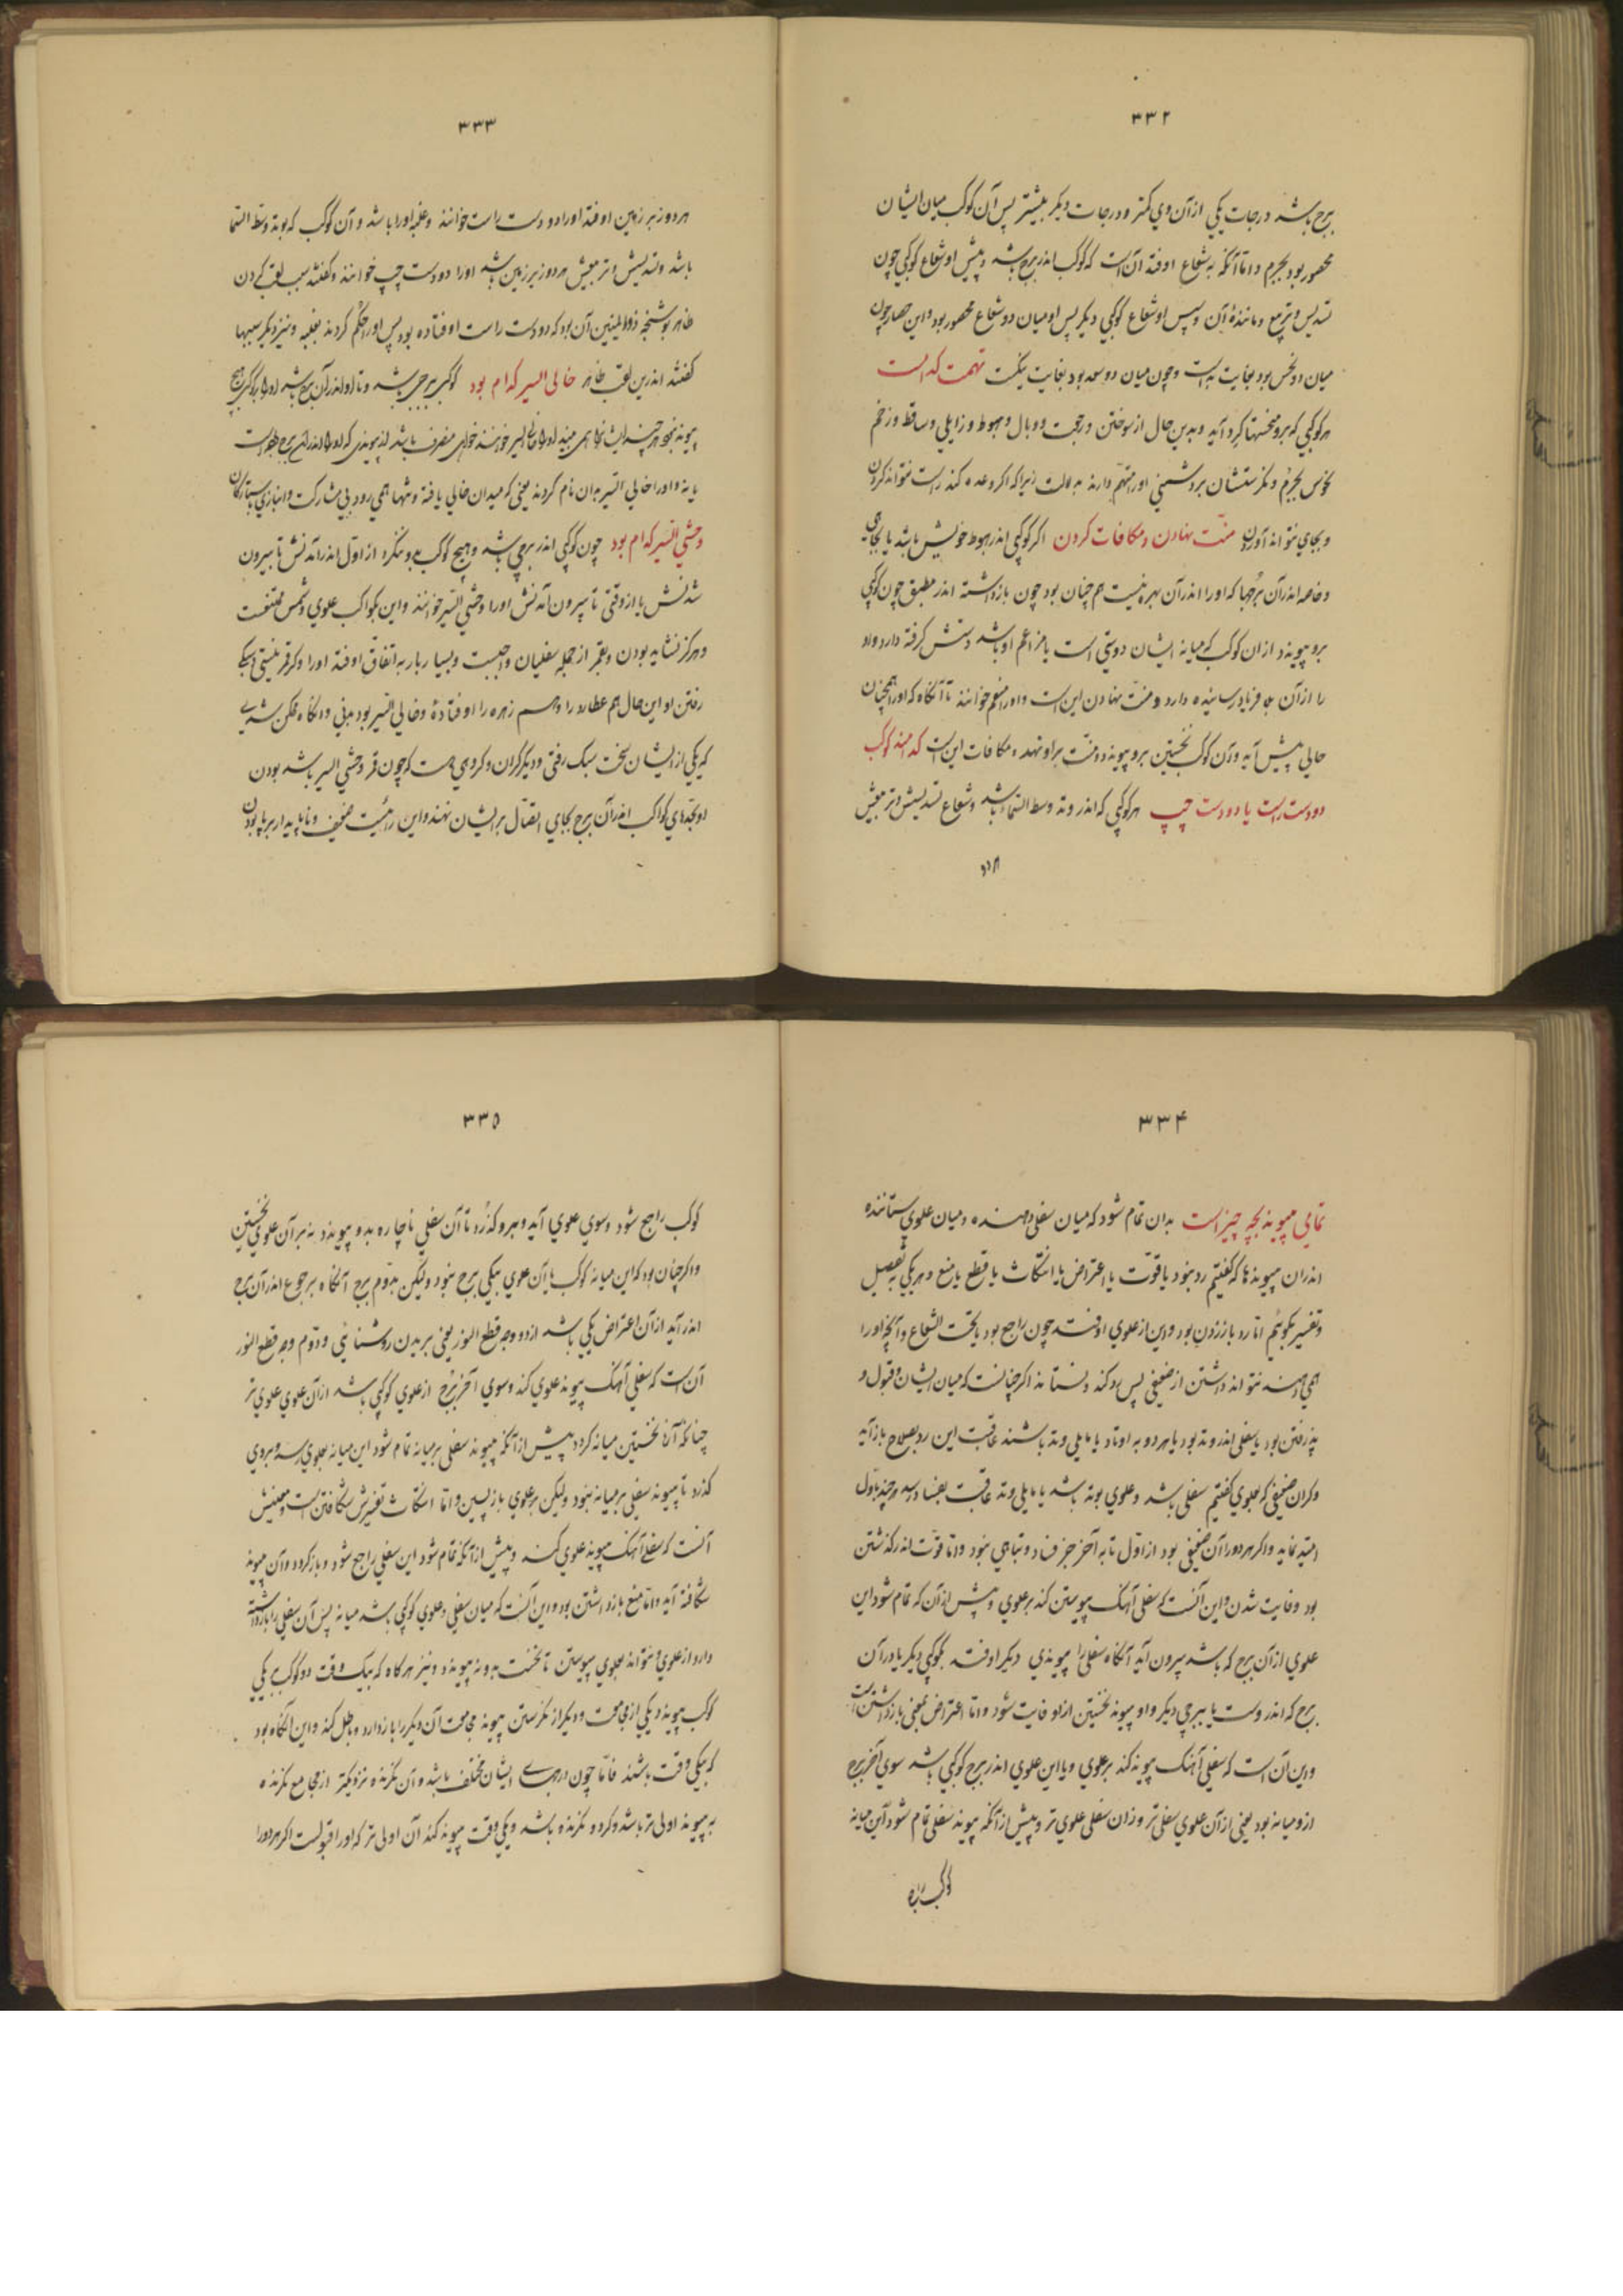 ۳۳۲
برج باشد درجات یکی از آن وی کمتر و درجات دیگر بیشتر پس آن کوکب میان ایشان
محصور بود بجرم و اما آنکه به شعاع اوفتد آن است که کوکب اندر برج باشد و پیش او شعاع کوکبی چون
تسدیس و تربیع و مانندهٔ آن و سپس او شعاع کوکبی دیگر پس او میان دو شعاع محصور بود و این حصار چون
میان دو نحس بود بغایت بد است و چون میان دو سعد بود بغایت نیکست تهمت کدامست
هر کوکبی که برو منحستها گرد آید و بدین حال از سوختن و رجعت و وبال و هبوط و زایلی و ساقط و زخم
نحوس بجرم و نگرستنشان بردشمنی او را متهم دارند به دلالت زیراکه اگر وعده کند راست نتواند کردن
و بجای نتواند آوردن منت نهادن و مکافات کردن اگر کوکبی اندر هبوط خویش باشد یا بجای
و خاصه اندر آن برجها که او را اندر آن بهره نیست هم چنان بود چون بازداشته اندر مطبق چون کوکبی
برو پیوندد از آن کوکب که میانه ایشان دوستی است یا مزاعم او باشد دستش گرفته دارد و او
را از آن به فریاد رسیده دارد و منت نهادن این است و او را منعم خوانند تا آنگاه که او را همچنان
حالی پیش آید و آن کوکب نخستین برو پیوندد و منت بر او نهد و مکافات این است کدامند کوکب
دو دست راست یا دو دست چپ هر کوکبی که اندر وتد وسط السماء باشد و شعاع تسدیسش و تربیعش
هر دو
۳۳۳
هر دو زبر زمین اوفتد او را دو دست راست خوانند و غلبه او را باشد و آن کوکب که بوتد وسط السما
باشد و تسدیسش و تربیعش هر دو زیر زمین باشد او را دو دست چپ خوانند و گفتند سبب لقب کردن
طاهر بوشنجه ذوالیمینین آن بود که دو دست راست اوفتاده بود پس او را حکم کردند بغلبه و نیز دیگر سببها
گفتند اندرین لقب طاهر خالی السیر کدام بود کوکبی ببرجی باشد و تا او اندر آن برج باشد او را با کوکبی هیچ
پیوند نبود هر چند ایشان
یابند و او را خالی السیر بدان نام کردند یعنی که میدان خالی یافته و تنها همی رود بی مشارکت و انبازی ستارگان
وحشی السیر کدام بود چون کوکبی اندر برجی باشد و هیچ کوکب بدو ننگرد از اول اندر آمدنش تا بیرون
شدنش یا از وقتی تا بیرون آمدنش او را وحشی السیر خوانند و این بکواکب علوی و شمس ممتنعست
و هرگز نشاید بودن و بقمر از جمله سفلیان واجبست و بسیار بار به اتفاق اوفتد او را و گر قمر نیستی و سبکی
رفتن او این حال هم عطارد را و هم زهره را اوفتادهٔ و خالی السیر بود بدنی و آنگاه ممکن شدی
که یکی از ایشان سخت سبک رفتی و دیگر گران و گروهی هست که چون قمر وحشی السیر باشد بودن
او بحدهای کواکب اندر آن برج بجای اتصال بر ایشان نهند و این رائیست ضعیف و ناپایدار بر پا بودن
۳۳۴
تمامی پیوند بچه چیز است بدان تمام شود که میان سفلی دهنده و میان علوی ستاننده
اندران پیوندها که گفتیم رد نبود یا فوت یا اعتراض یا انتکاث یا قطع یا منع و هر یکی به تفصیل
و تفسیر بگوئیم اما رد باز زدن بود و این از علوی اوفتد چون راجع بود یا تحت الشعاع و آنچه او را
همی دهند نتواند داشتن از ضعیفی پس رد کند و نستاند اگر چنانست که میان ایشان و قبول و
پذیرفتن بود یا سفلی اندر وتد بود یا هر دو به اوتاد یا مایلی وتد باشند عاقبت این رد بصلاح باز آید
و گر آن ضعیفی که بعلوی گفتیم سفلی باشد و علوی بوتد باشد یا مایلی وتد عاقبت بفساد رسد هر چند باول
امید نماید و اگر هر دو را آن ضعیفی بود از اول تا به آخر جز فساد و تباهی نبود و اما فوت اندر گذشتن
بود و فایت شدن و این آنست که سفلی آهنگ پیوستن کند بر علوی و پیش از آن که تمام شود این
علوی از آن برج که باشد بیرون آید آنگاه سفلی را پیوندی دیگر اوفتد بکوکبی دیگر یا در آن
برج که اندر وست یا ببرجی دیگر و او پیوند نخستین از او فایت شود و اما اعتراض یعنی بازداشتن است
و این آن است که سفلی آهنگ پیوند کند بر علوی و با این علوی اندر برج کوکبی باشد سوی آخر برج
از و میانه بود یعنی از آن علوی سفلی تر و زان سفلی علوی تر و پیش از آنکه پیوند سفلی تمام شود این میانه
کوکب راجع
۳۳۵
کوکب راجع شود و سوی علوی آید و برو گذرد تا آن سفلی ناچاره بدو پیوندد نه بر آن علوی نخستین
و اگر چنان بود که این میانه کوکب با آن علوی بیکی برج نبود ولیکن بدوم برج آنگاه برجوع اندر آن برج
اندر آید از آن اعتراض یکی باشد از دو وجه قطع النور یعنی بریدن روشنائی و دوم وجه قطع النور
آن است که سفلی آهنگ پیوند علوی کند و سوی آخر برج از علوی کوکبی باشد از آن علوی علوی تر
چنانکه آن نخستین میانه گردد پیش از آنکه پیوند سفلی بر میانه تمام شود این میانه بعلوی رسد و بروی
گذرد تا پیوند سفلی بر میانه نبود ولیکن بر علوی باز پسین و اما انتکاث تفسیرش شکافتن است و معنیش
آنست که سفلی آهنگ پیوند علوی کند و پیش از آنکه تمام شود این سفلی راجع شود و باز گردد و آن پیوند
شکافته آید و اما منع بازداشتن بود و این آنست که میان سفلی و علوی کوکبی باشد میانه پس آن سفلی را بازداشته
دارد از علوی و نتواند بعلوی پیوستن تا نخست بدو نه پیوندد و نیز هر گاه که بیک وقت دو کوکب بر یکی
کوکب پیوندد یکی از مجامعت و دیگر از نگرستن پیوند مجامعت آن دیگر را باز دارد و باطل کند و این آنگاه بود
که بیکی وقت باشند فاما چون درجهاء ایشان مختلف باشد و آن نگرنده نزدیکتر از مجامع نگرنده
به پیوند اولی تر باشد و گر دو نگرنده باشد و بیکی وقت پیوند کنند آن اولی تر که او را قبولست اگر هر دو را